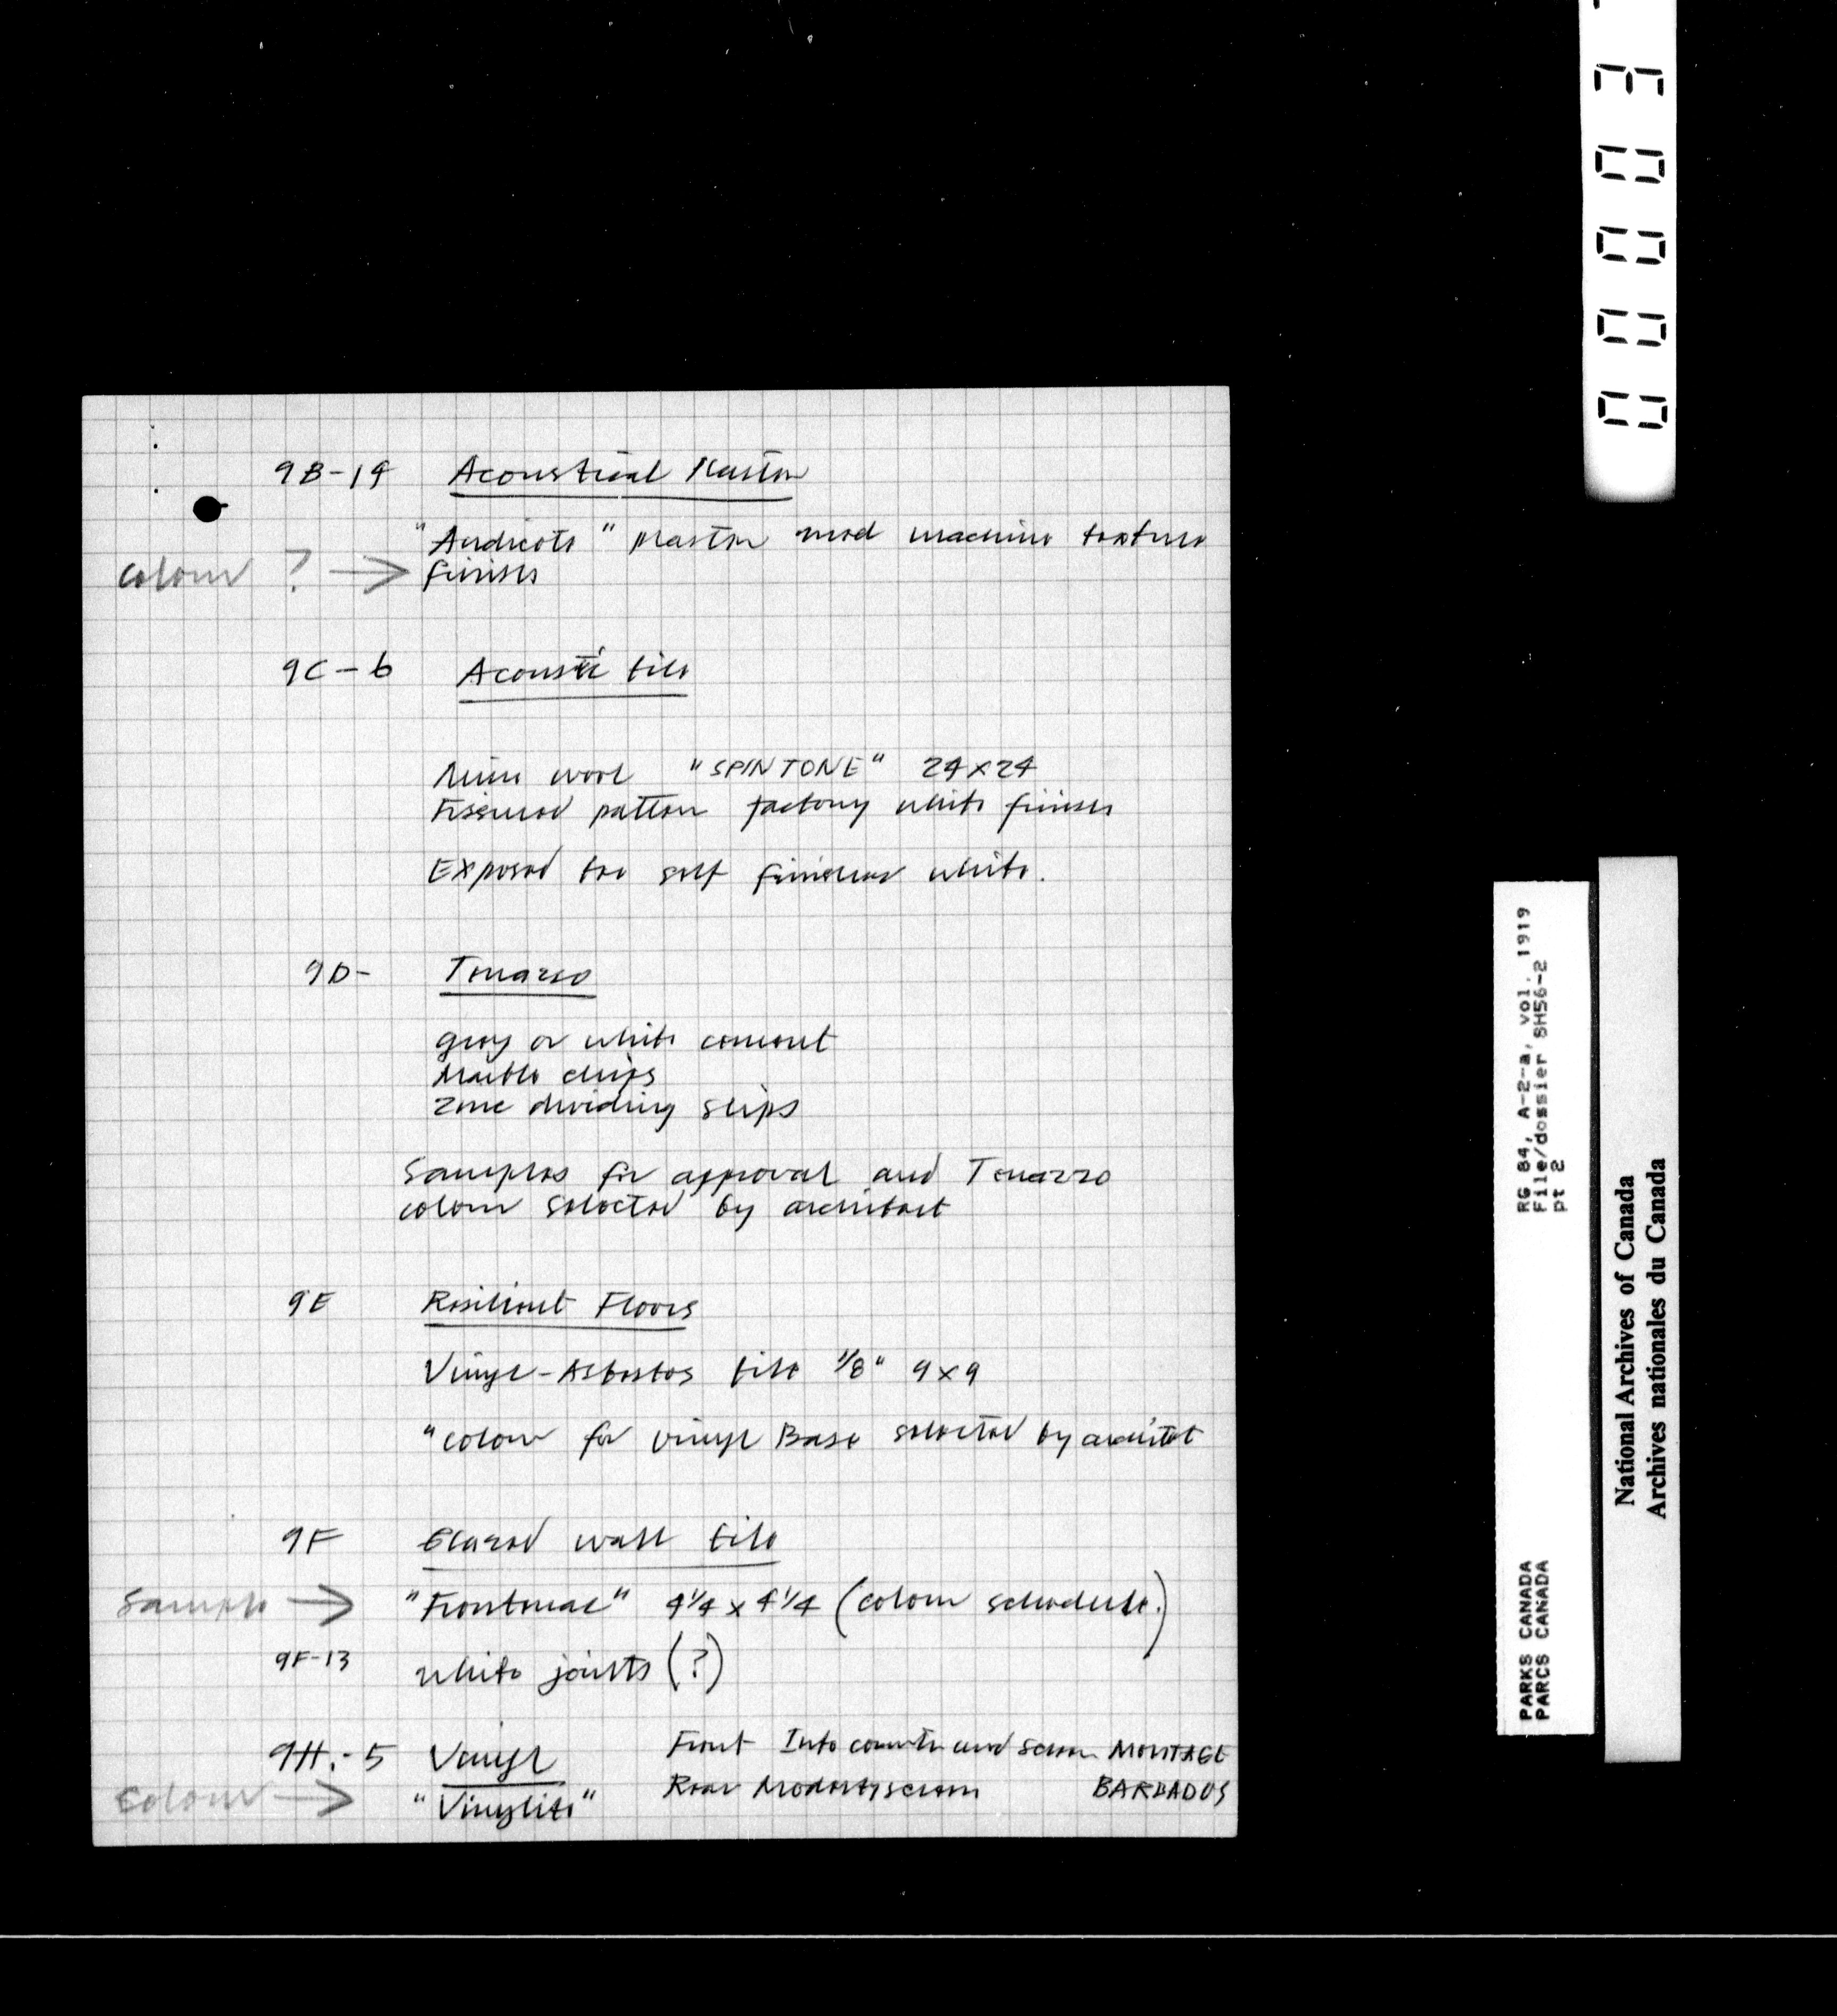 9B-14 Acoustical Plaster
"Audicote" plaster med machine texture
colour ? → finish
9C-6 Acoustic tile
Min. wool "SPINTONE" 24x24
Fissured pattern factory white finish
Exposed tee self finished white.
9D- Terrazzo
grey or white cement
Marble chips
zinc dividing strips
Samples for approval and Terrazzo
colour selected by architect
9E Resilient Floors
Vinyl-Asbestos tile 1/8" 9x9
"colour for vinyl Base selected by architect
9F Glazed wall tile
Sample → "Frontenac" 4 1/4 x 4 1/4 (colour schedule.)
9F-13 white joints (?)
9H.-5 Vinyl Front Info counter and screen MONTAGE
Colour → "Vinylite" Rear Modesty screen BARBADOS
00003
RG 84, A-2-a, vol. 1919
File/dossier SH56-2
pt 2
PARKS CANADA
PARCS CANADA
National Archives of Canada
Archives nationales du Canada